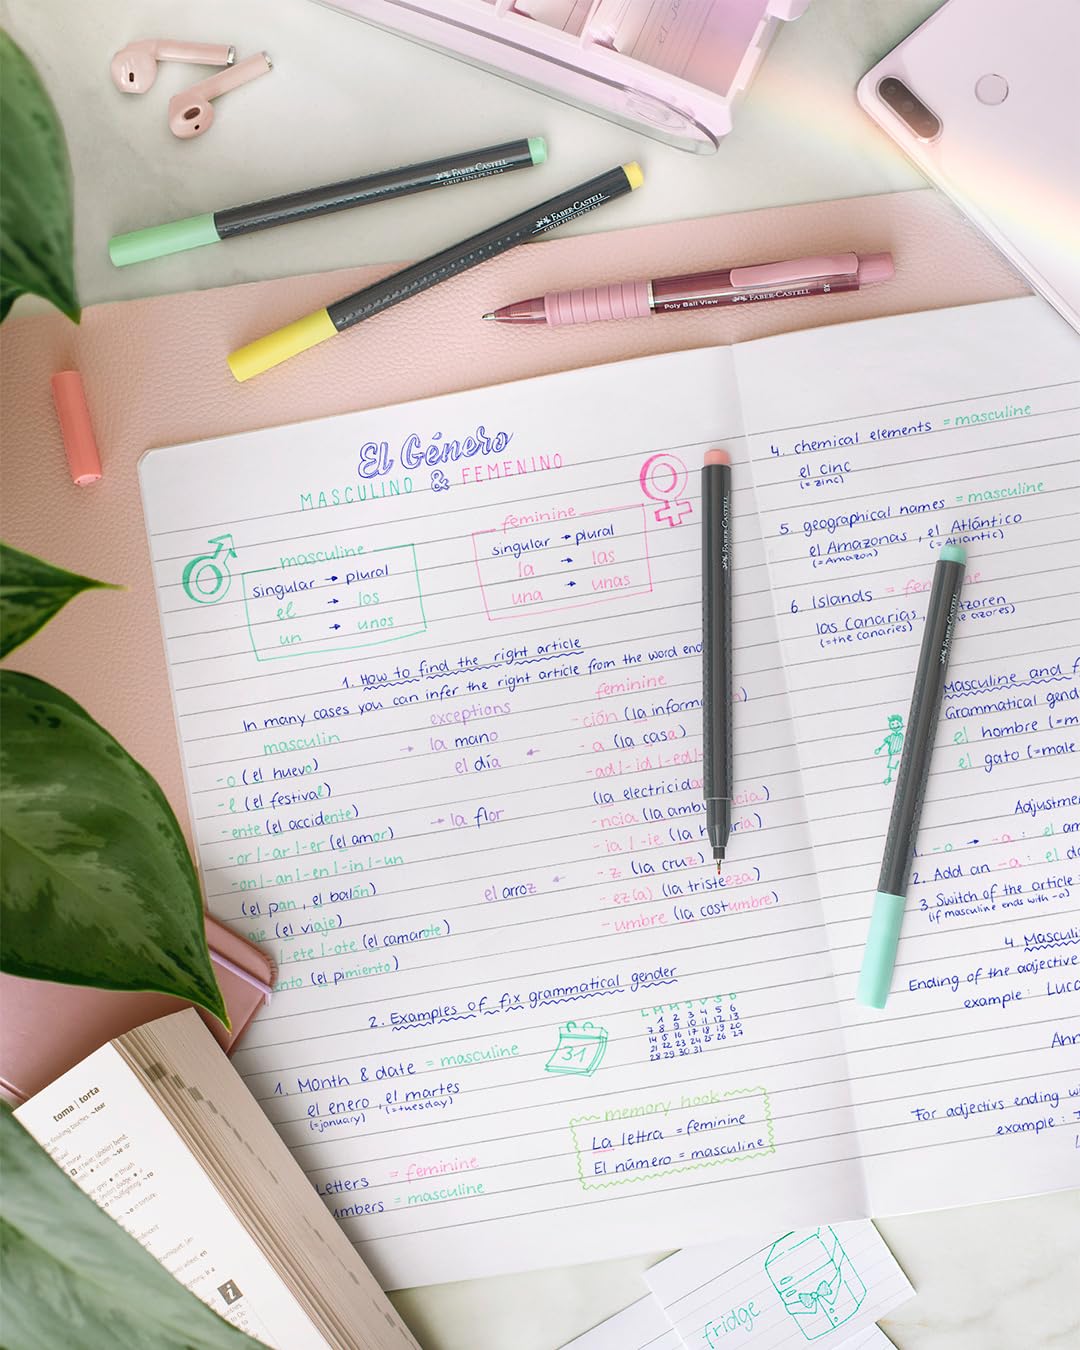 FABER-CASTELL
GRIP FINEPEN 0.4
FABER-CASTELL
GRIP FINEPEN 0.4
Poly Ball View FABER-CASTELL XB
FABER-CASTELL
FABER-CASTELL
El Género
MASCULINO & FEMENINO
masculine
singular → plural
el → los
un → unos
feminine
singular → plural
la → las
una → unas
1. How to find the right article
In many cases you can infer the right article from the word
masculin
-o (el huevo)
-e (el festival)
-ente (el accidente)
-or/-ar/-er (el amor)
-on/-an/-en/-in/-un
(el pan, el balón)
(el viaje)
-ete/-ote (el camarote)
(el pimiento)
exceptions
→ la mano
el día ←
→ la flor
el arroz ←
feminine
-ción (la
-a (la casa)
-ad/-id/-ed/-
(la
-ncia (la
-ia/-ie (la
-z (la cruz)
-ez(a) (la tristeza)
-umbre (la costumbre)
2. Examples of fix grammatical gender
1. Month & date = masculine
el enero, el martes
(=january) (=tuesday)
31
L M M J V S D
1 2 3 4 5 6
7 8 9 10 11 12 13
14 15 16 17 18 19 20
21 22 23 24 25 26 27
28 29 30 31
Letters = feminine
= masculine
memory hook
La letra = feminine
El número = masculine
4. chemical elements = masculine
el cinc
(= zinc)
5. geographical names = masculine
el Amazonas, el Atlántico
(=Amazon) (=Atlantic)
6. Islands =
las canarias,
(=the canaries)
Masculine and
Grammatical
el hombre
el gato (=male
1. -o → -a: el
2. Add an -a: el
3. Switch of the article
(if masculine ends with -a)
4.
Ending of the adjective
example:
For adjectivs ending
example:
toma | torta
i
fridge